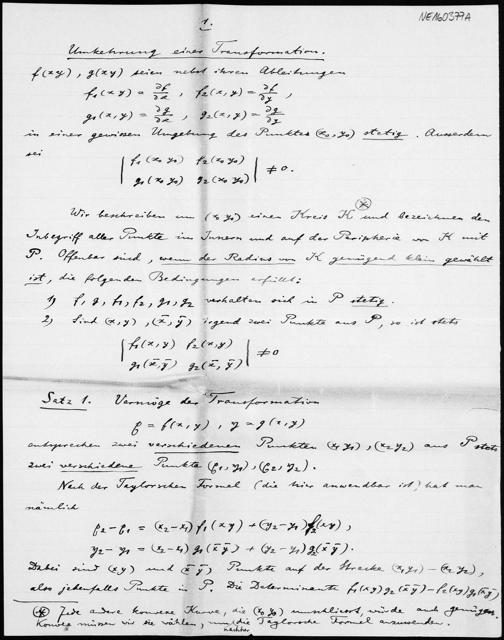 NE160377A
1.
Umkehrung einer Transformation.
f(xy), g(xy) seien nebst ihren Ableitungen
f₁(xy) = ∂f/∂x , f₂(x,y) = ∂f/∂y ,
g₁(xy) = ∂g/∂x , g₂(x,y) = ∂g/∂y
in einer gewissen Umgebung des Punktes (x₀,y₀) stetig. Ausserdem
sei
| f₁(x₀ y₀) f₂(x₀ y₀) |
| g₁(x₀ y₀) g₂(x₀ y₀) | ≠ 0.
Wir beschreiben um (x₀ y₀) einen Kreis K ⊛ und bezeichnen den
Inbegriff aller Punkte im Innern und auf der Peripherie von K mit
P. Offenbar sind, wenn der Radius von K genügend klein gewählt
ist, die folgenden Bedingungen erfüllt:
1) f, g, f₁, f₂, g₁, g₂ verhalten sich in P stetig.
2) Sind (x,y), (x̄,ȳ) irgend zwei Punkte aus P, so ist stets
| f₁(x,y) f₂(x,y) |
| g₁(x̄,ȳ) g₂(x̄,ȳ) | ≠ 0
Satz 1. Vermöge der Transformation
ξ = f(x,y) , η = g(x,y)
entsprechen zwei verschiedenen Punkten (x₁y₁), (x₂y₂) aus P stets
zwei verschiedene Punkte (ξ₁,η₁), (ξ₂,η₂).
Nach der Taylorschen Formel (die hier anwendbar ist) hat man
nämlich
ξ₂-ξ₁ = (x₂-x₁) f₁(xy) + (y₂-y₁) f₂(xy) ,
η₂-η₁ = (x₂-x₁) g₁(x̄ȳ) + (y₂-y₁) g₂(x̄ȳ).
Dabei sind (xy) und (x̄ȳ) Punkte auf der Strecke (x₁y₁)-(x₂y₂),
also jedenfalls Punkte in P. Die Determinante f₁(xy)g₂(x̄ȳ)-f₂(xy)g₁(x̄ȳ)
⊛ Jede andere konvexe Kurve, die (x₀y₀) umschliesst, würde auch genügen.
Konvex müssen wir sie wählen, um die Taylorsche Formel anzuwenden.
nachher